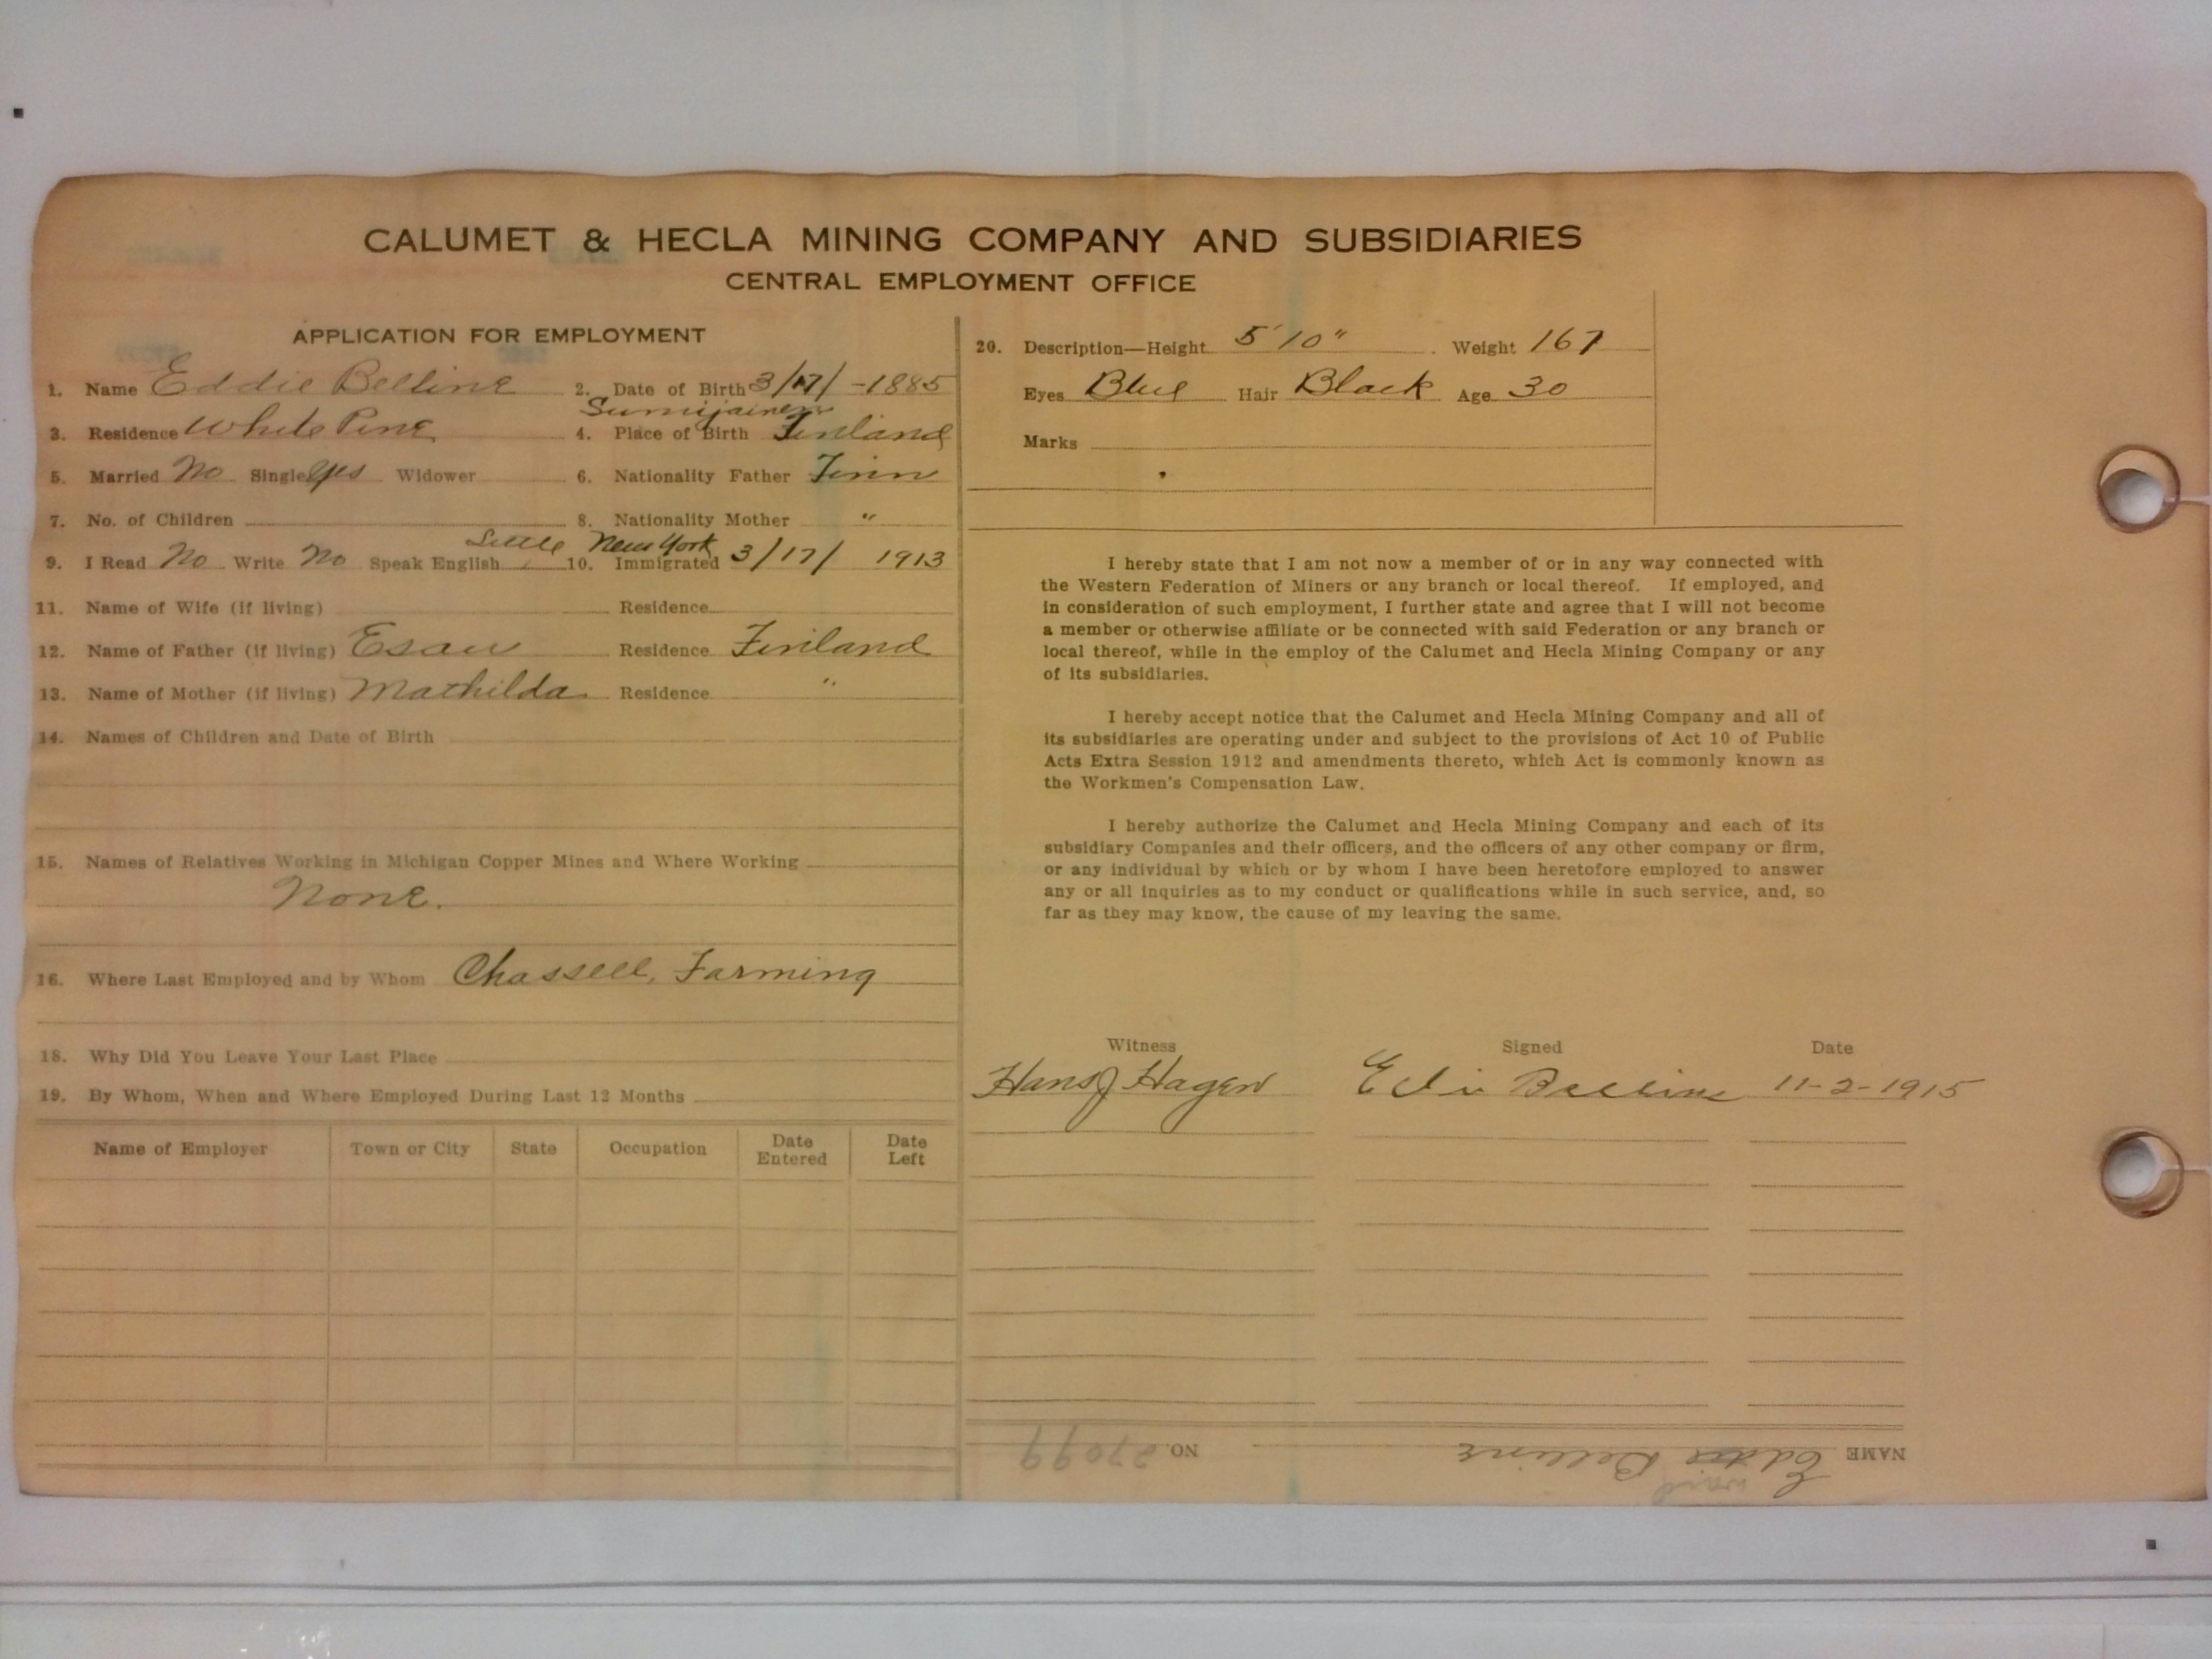 CALUMET & HECLA MINING COMPANY AND SUBSIDIARIES
CENTRAL EMPLOYMENT OFFICE
APPLICATION FOR EMPLOYMENT
1. Name Eddie Belline 2. Date of Birth 3/17/-1885
Sumijainen
3. Residence White Pine 4. Place of Birth Finland
5. Married No Single Yes Widower 6. Nationality Father Finn
7. No. of Children 8. Nationality Mother "
Little New York
9. I Read No Write No Speak English 10. Immigrated 3/17/ 1913
11. Name of Wife (if living) Residence
12. Name of Father (if living) Esau Residence Finland
13. Name of Mother (if living) Mathilda Residence "
14. Names of Children and Date of Birth
15. Names of Relatives Working in Michigan Copper Mines and Where Working
None.
16. Where Last Employed and by Whom Chassell, Farming
18. Why Did You Leave Your Last Place
19. By Whom, When and Where Employed During Last 12 Months
Name of Employer Town or City State Occupation Date Entered Date Left
20. Description—Height 5'10" Weight 167
Eyes Blue Hair Black Age 30
Marks
I hereby state that I am not now a member of or in any way connected with
the Western Federation of Miners or any branch or local thereof. If employed, and
in consideration of such employment, I further state and agree that I will not become
a member or otherwise affiliate or be connected with said Federation or any branch or
local thereof, while in the employ of the Calumet and Hecla Mining Company or any
of its subsidiaries.
I hereby accept notice that the Calumet and Hecla Mining Company and all of
its subsidiaries are operating under and subject to the provisions of Act 10 of Public
Acts Extra Session 1912 and amendments thereto, which Act is commonly known as
the Workmen's Compensation Law.
I hereby authorize the Calumet and Hecla Mining Company and each of its
subsidiary Companies and their officers, and the officers of any other company or firm,
or any individual by which or by whom I have been heretofore employed to answer
any or all inquiries as to my conduct or qualifications while in such service, and, so
far as they may know, the cause of my leaving the same.
Witness Signed Date
Hans J Hagen Edi Belline 11-2-1915
NAME Eddie Belline NO. 27099